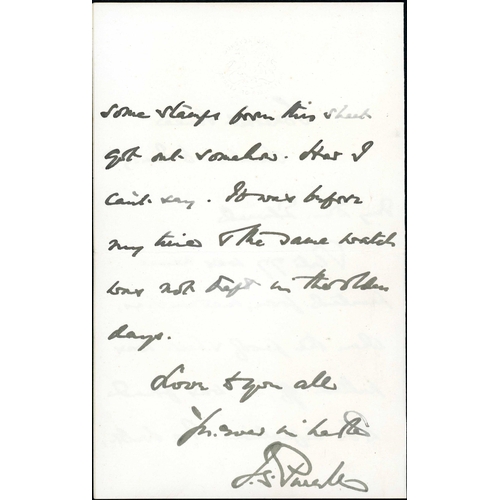 some stamps from this sheet
got out somehow. How I
can't say. It was before
my time & the same watch
was not kept in the olden
days.
Love to you all
Yrs. ever in haste